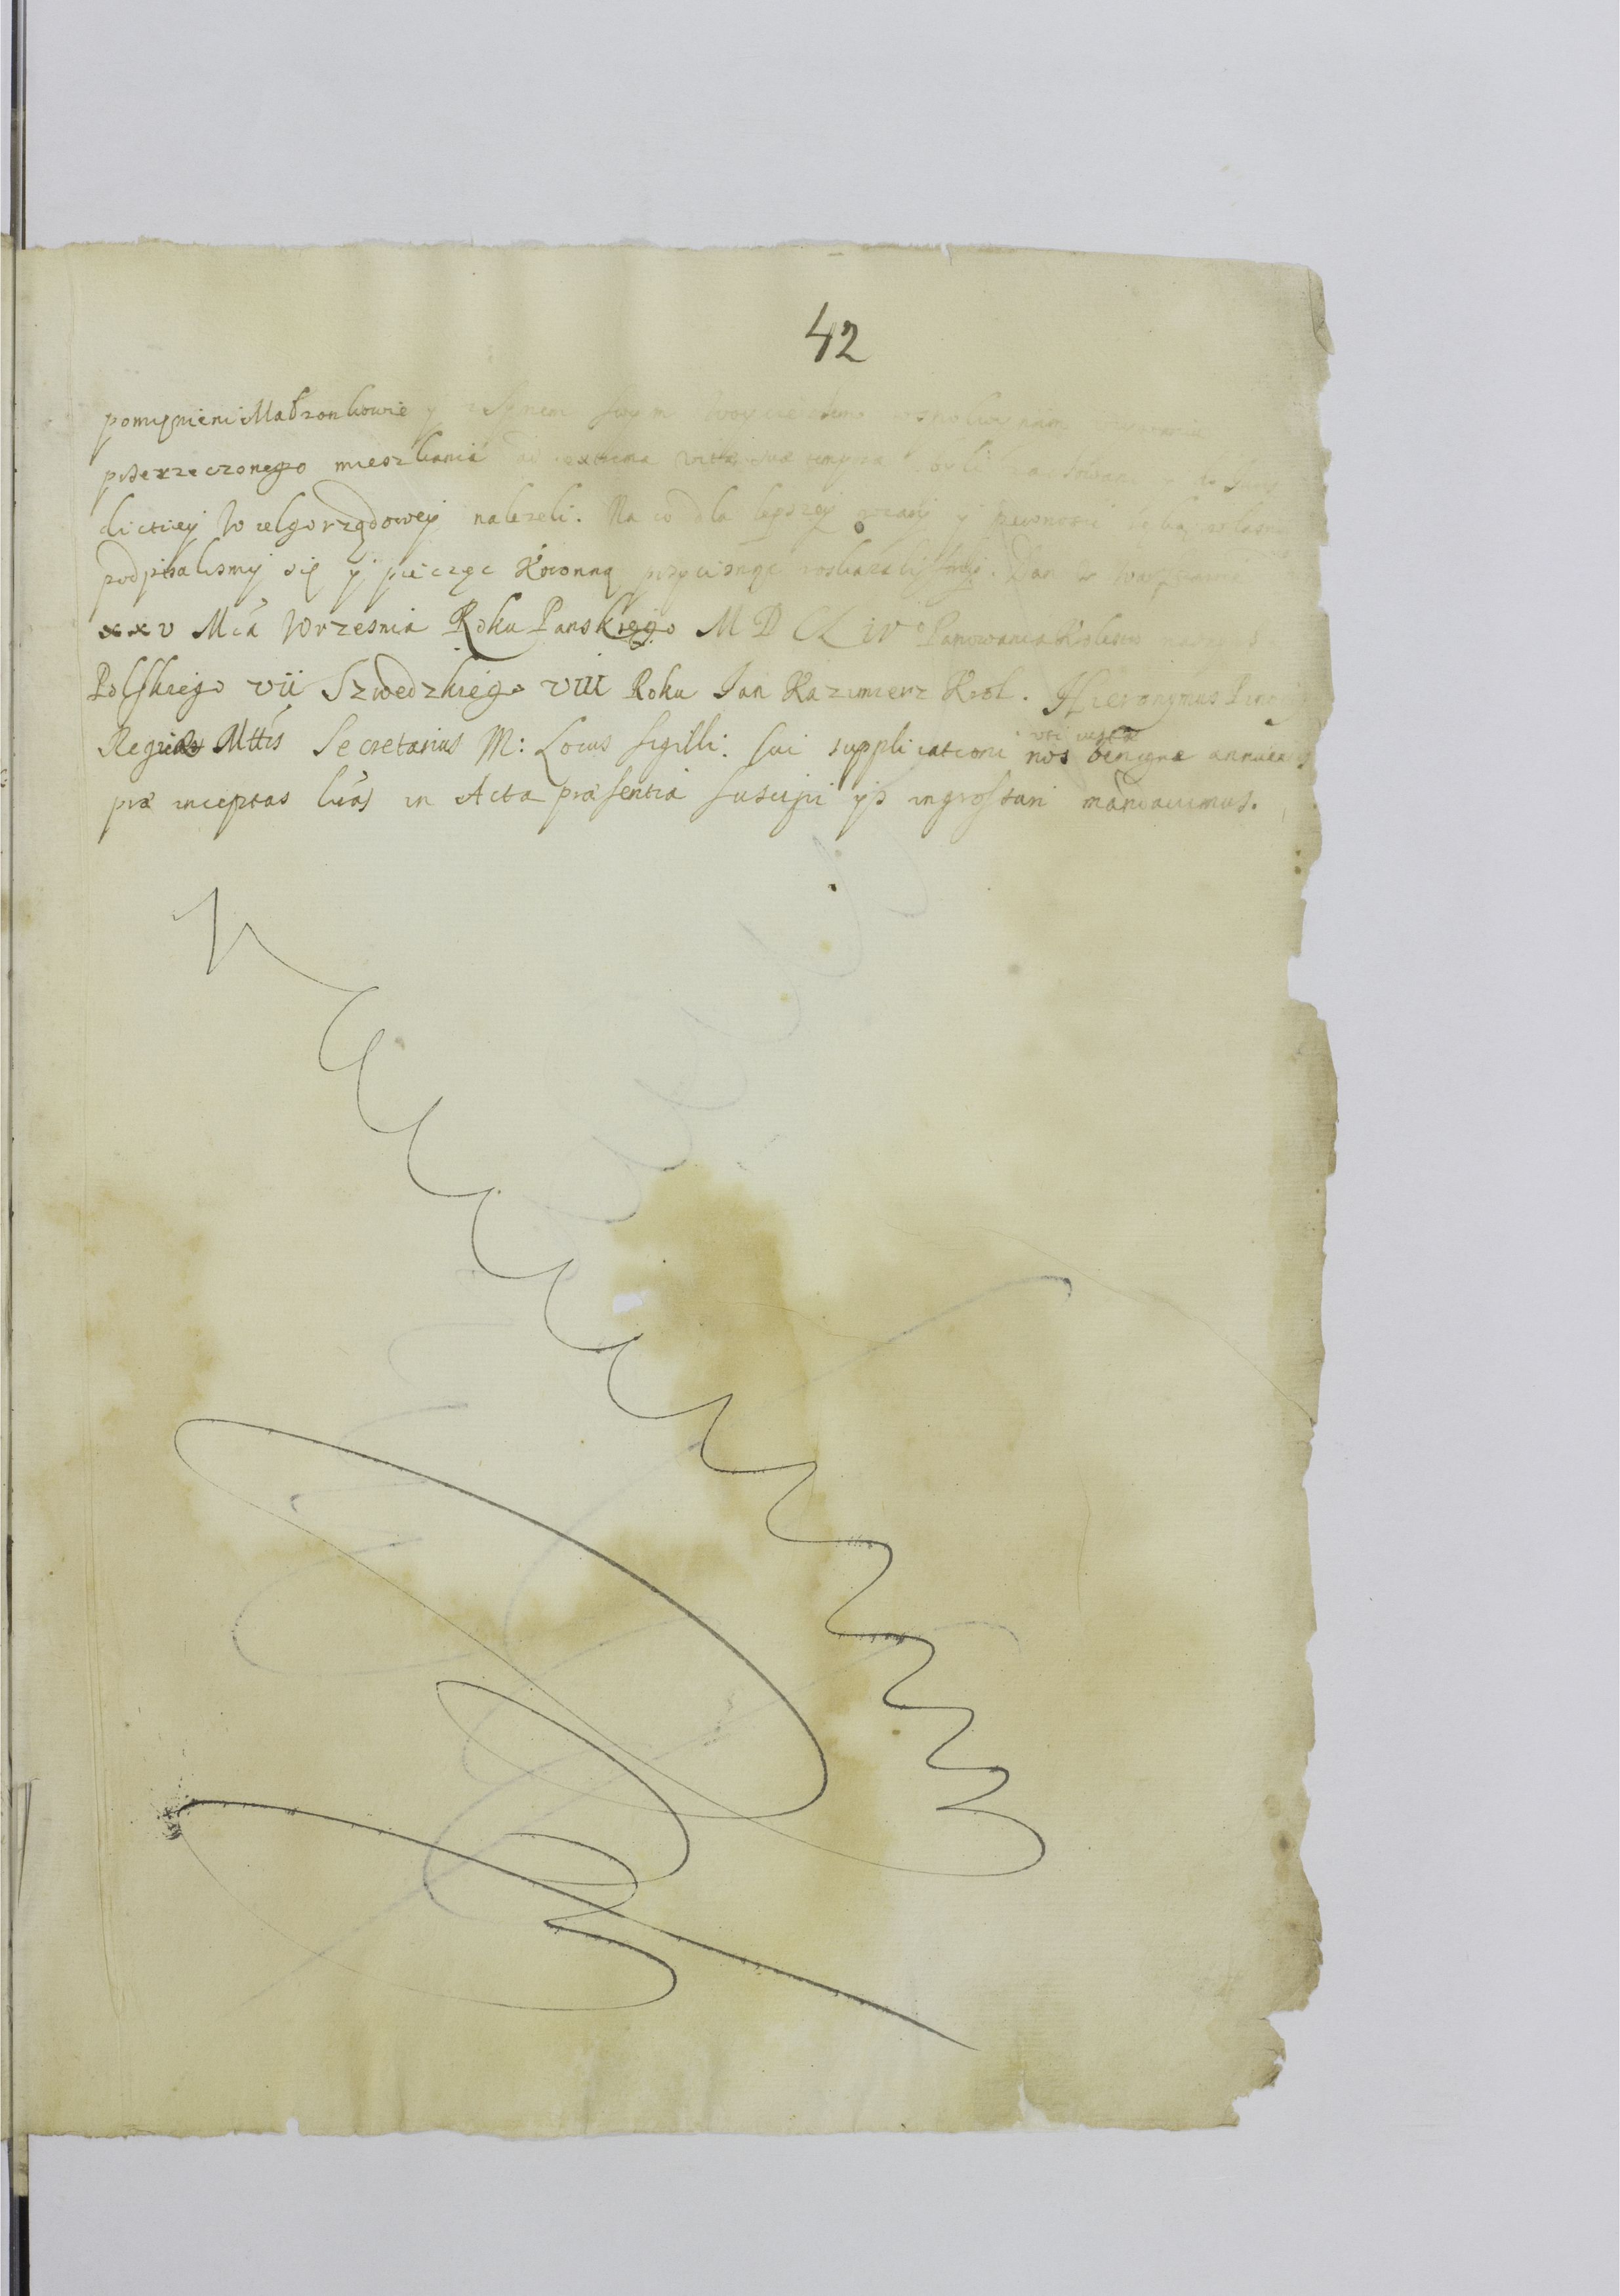 42
pomięnieni Małzonkowie y z Synem swym
przerzeczonego mieszkania ad extrema vitæ suæ tempora byli zachowani y do Juris
dictiey Wielgorządowey nalezeli. Na co dla lepszey wiary y pewnosci ręką własną
podpisalismy się y pieczęc Koronną przycisnąc roskazalismy. Dan w Warszawie
xxv Mca Wrzesnia Roku Panskiego MDCLiv Panowania Krolestw naszych
Polskiego vii Szwedzkiego viii Roku Jan Kazimierz Krol. Hieronymus Pinocy
Regiæ Mttis Secretarius M: Locus sigilli. Cui supplicationi nos benigne annuen
præ inceptas lras in Acta præsentia suscipi ingrossari mandavimus.